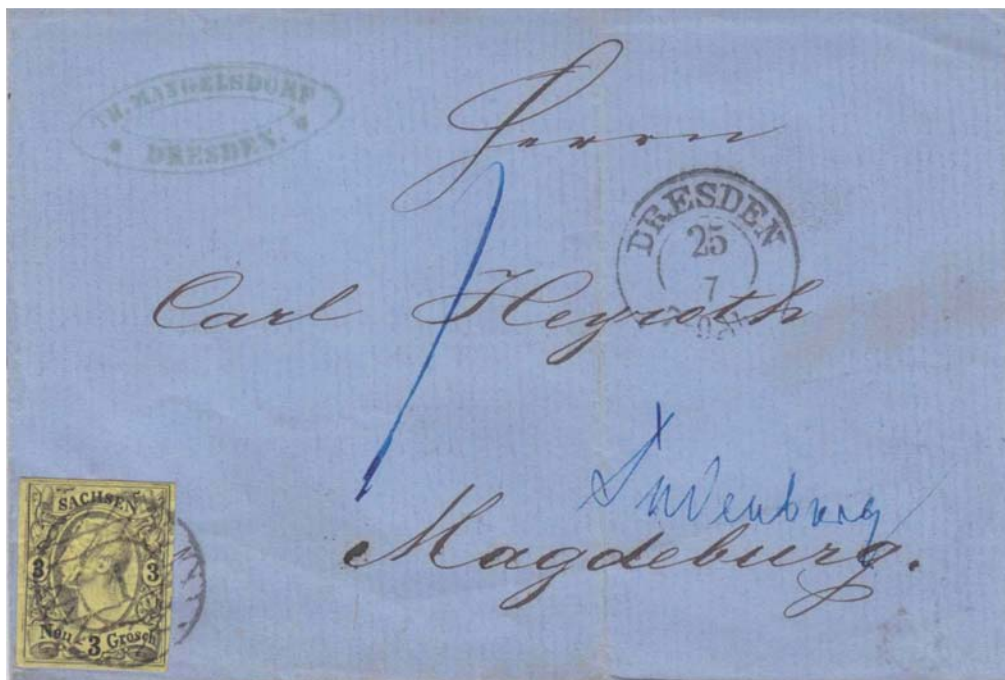 TH. MANGELSDORF
DRESDEN.
Herrn
DRESDEN
25
7
Carl Heyroth
Sudenburg
Magdeburg.
SACHSEN
3 3
Neu- 3 Grosch